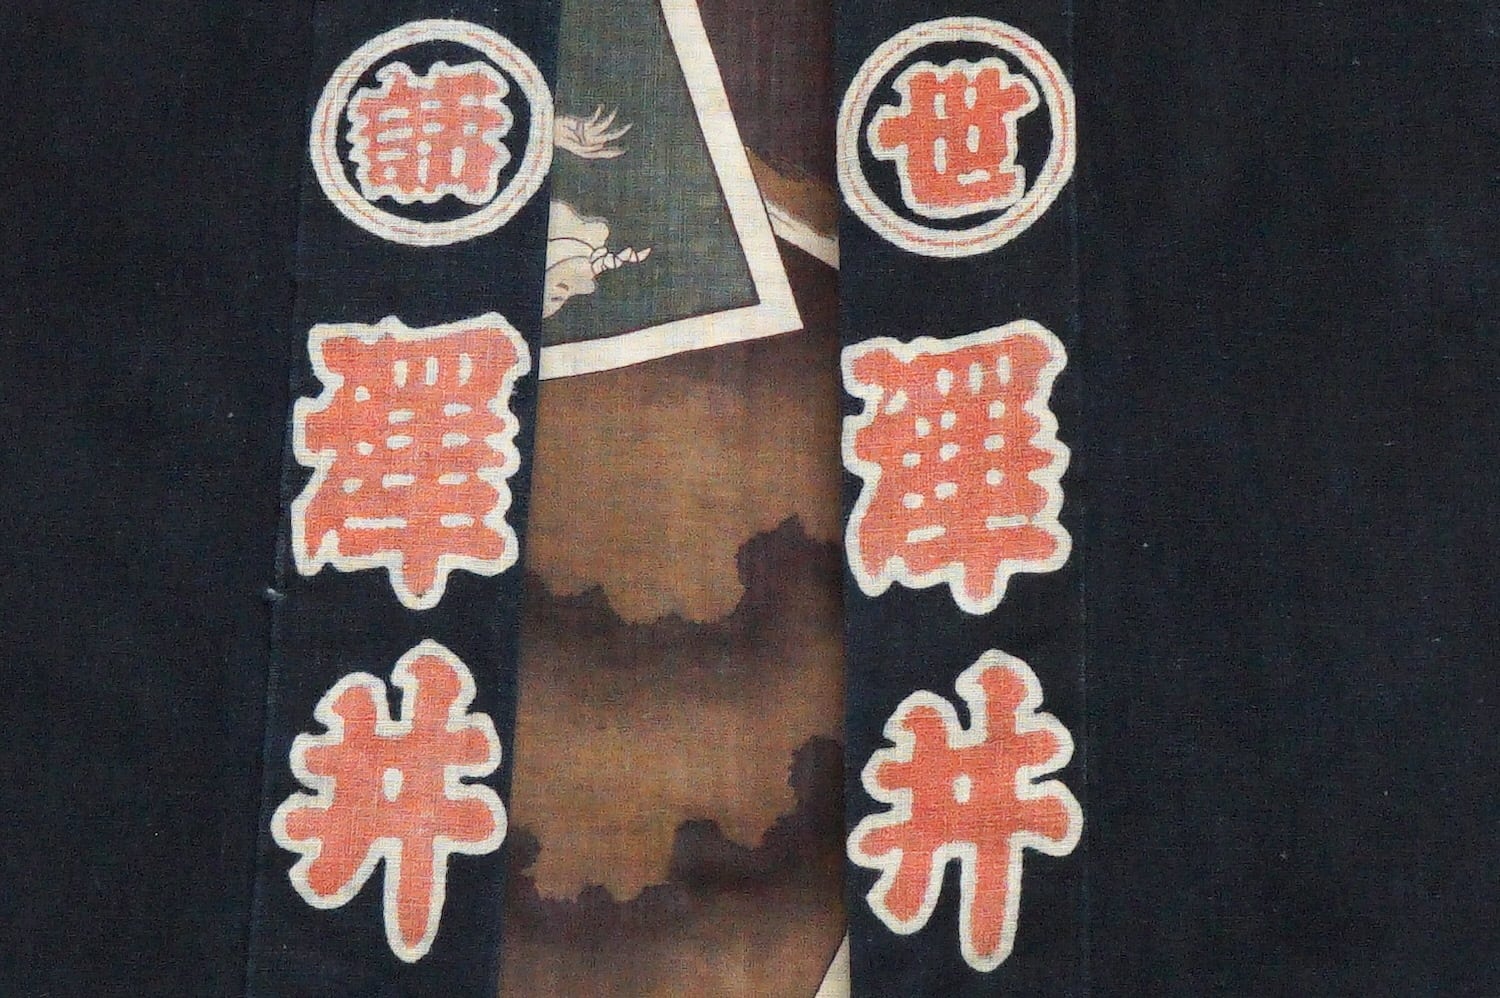 世
澤井
講
澤井